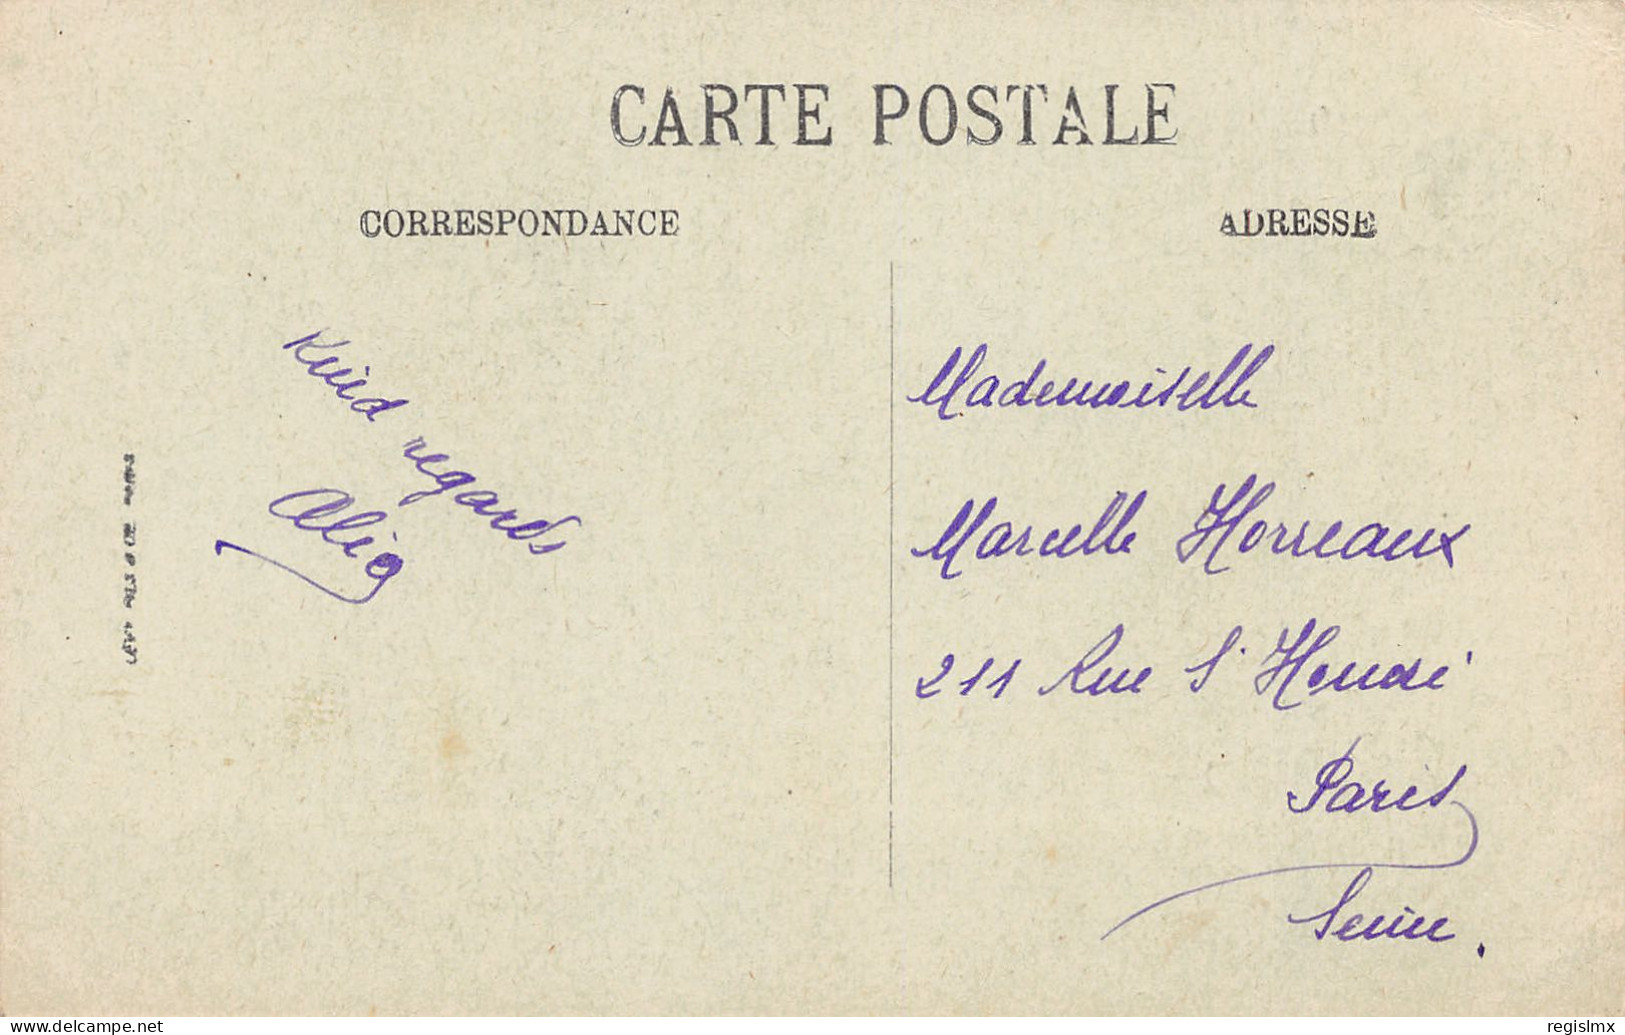 CARTE POSTALE
CORRESPONDANCE
ADRESSE
Kind regards
Mademoiselle
Marcelle Horreaux
211 Rue St Honoré
Paris
Seine.
www.delcampe.net
regislmx